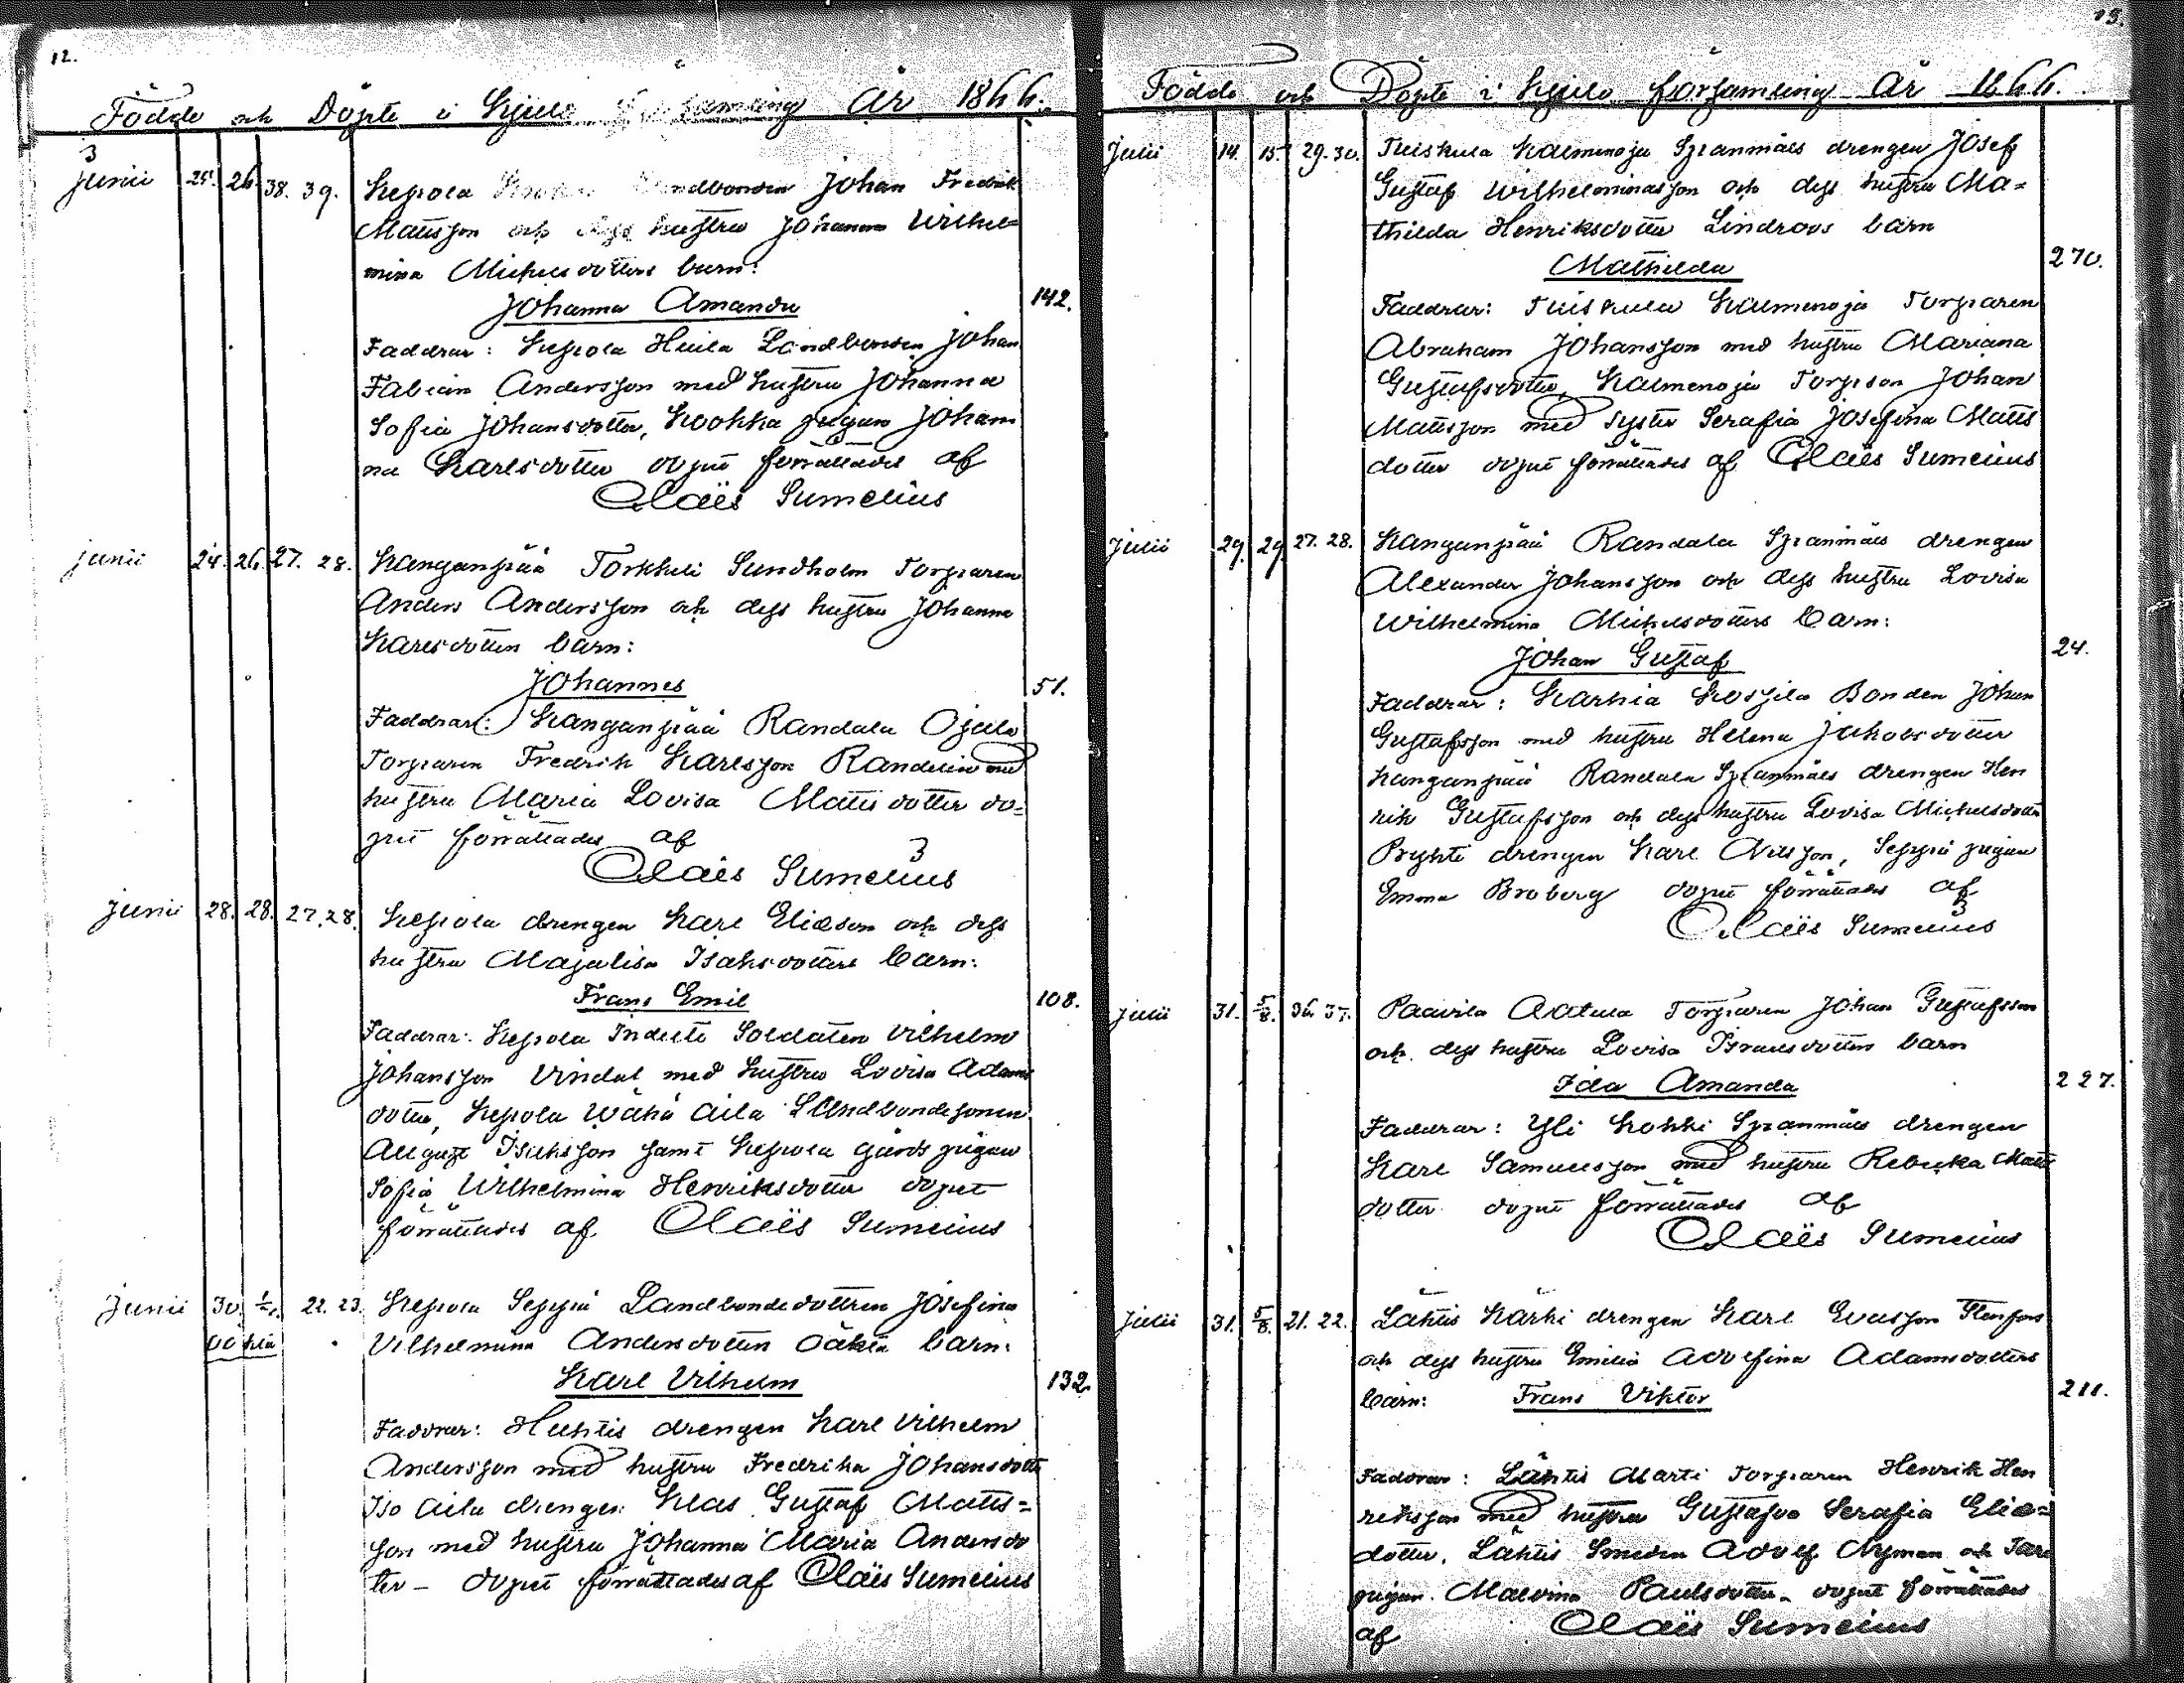 12.
Födde och Döpte i Kjulo församling År 1866.
3
Junii 25. 26. 38. 39. Kepola Landbonden Johan Fredrik
Mattsson och dess hustru Johanna Wilhel=
mina Michelsdotters barn:
Johanna Amanda
142.
Faddrar: Kepola Huila Landbonden Johan
Fabian Andersson med hustru Johanna
Sofia Johansdotter, Kookka pigan Johan
na Karlsdotter döpit förrättades af
Claës Sumelius
Junii 24. 26. 27. 28. Kanganpää Torkkeli Sundholm Torparen
Anders Andersson och dess hustru Johanna
Karlsdotters barn:
Johannes
51.
Faddrar: Kanganpää Randala Ojala
Torparen Fredrik Karlsson Randelin med
hustru Maria Lovisa Mattsdotter dö=
pit förrättades af
3
Claës Sumelius
Junii 28. 28. 27. 28. Kepola drengen Karl Eliason och dess
hustru Majalisa Isaksdotters barn:
Frans Emil
108.
Faddrar: Kepola Indelte Soldaten Vilhelm
Johansson Vindal med hustru Lovisa Adams
dotter, Kepola Wähä Aila Landbondesonen
August Isaksson samt Kepola gårds pigan
Sofia Wilhelmina Henriksdotter döpit
förrättades af Claës Sumelius
Junii 30. 1/7. 22. 23. Kepola Seppä Landbondedottren Josefina
oökta Vilhelmina Andersdotters oäkta barn:
Karl Vilhelm
132.
Faddrar: Huhtis drengen Karl Vilhelm
Andersson med hustru Fredrika Johansdotter
Iso Aila drengen Klas Gustaf Matts=
son med hustru Johanna Maria Andersdo
ter – döpit förrättades af Claës Sumelius
13.
Födde och Döpte i Kjulo församling År 1866.
Julii 14. 15. 29. 30. Tuiskula Kalmenoja Spanmåls drengen Josef
Gustaf Wilhelminasson och dess hustru Ma=
thilda Henriksdotter Lindroos barn
Mathilda
270.
Faddrar: Tuiskula Kalmenoja Torparen
Abraham Johansson med hustru Mariana
Gustafsdotter, Kalmenoja Torpson Johan
Mattsson med syster Serafia Josefina Matts
dotter döpit förrättades af Claës Sumelius
Julii 29. 29. 27. 28. Kanganpää Randala Spanmåls drengen
Alexander Johansson och dess hustru Lovisa
Wilhelmina Michelsdotters barn:
Johan Gustaf
24.
Faddrar: Karhia Kospila Bonden Johan
Gustafsson med hustru Helena Jakobsdotter
Kanganpää Randala Spanmåls drengen Hen
rik Gustafsson och dess hustru Lovisa Michelsdotter
Pryhti drengen Karl Nilsson, Seppä pigan
Emma Broberg döpit förrättades af
3
Claës Sumelius
Julii 31. 5/8. 36. 37. Paavila Aatula Torparen Johan Gustafsson
och dess hustru Lovisa Israelsdotters barn
Ida Amanda
227.
Faddrar: Yli Kokki Spanmåls drengen
Karl Samuelsson med hustru Rebecka Matts
dotter döpit förrättades af
Claës Sumelius
Julii 31. 5/8. 21. 22. Lähtis Kärki drengen Karl Evasson Stenfors
och dess hustru Emilia Adolfina Adamsdotters
barn: Frans Viktor
211.
Faddrar: Lähtis Marti Torparen Henrik Hen
riksson med hustru Gustafva Serafia Elias=
dotter, Lähtis Smeden Adolf Nyman och
pigan Malvina Paulsdotter – döpit förrättades
af Claës Sumelius